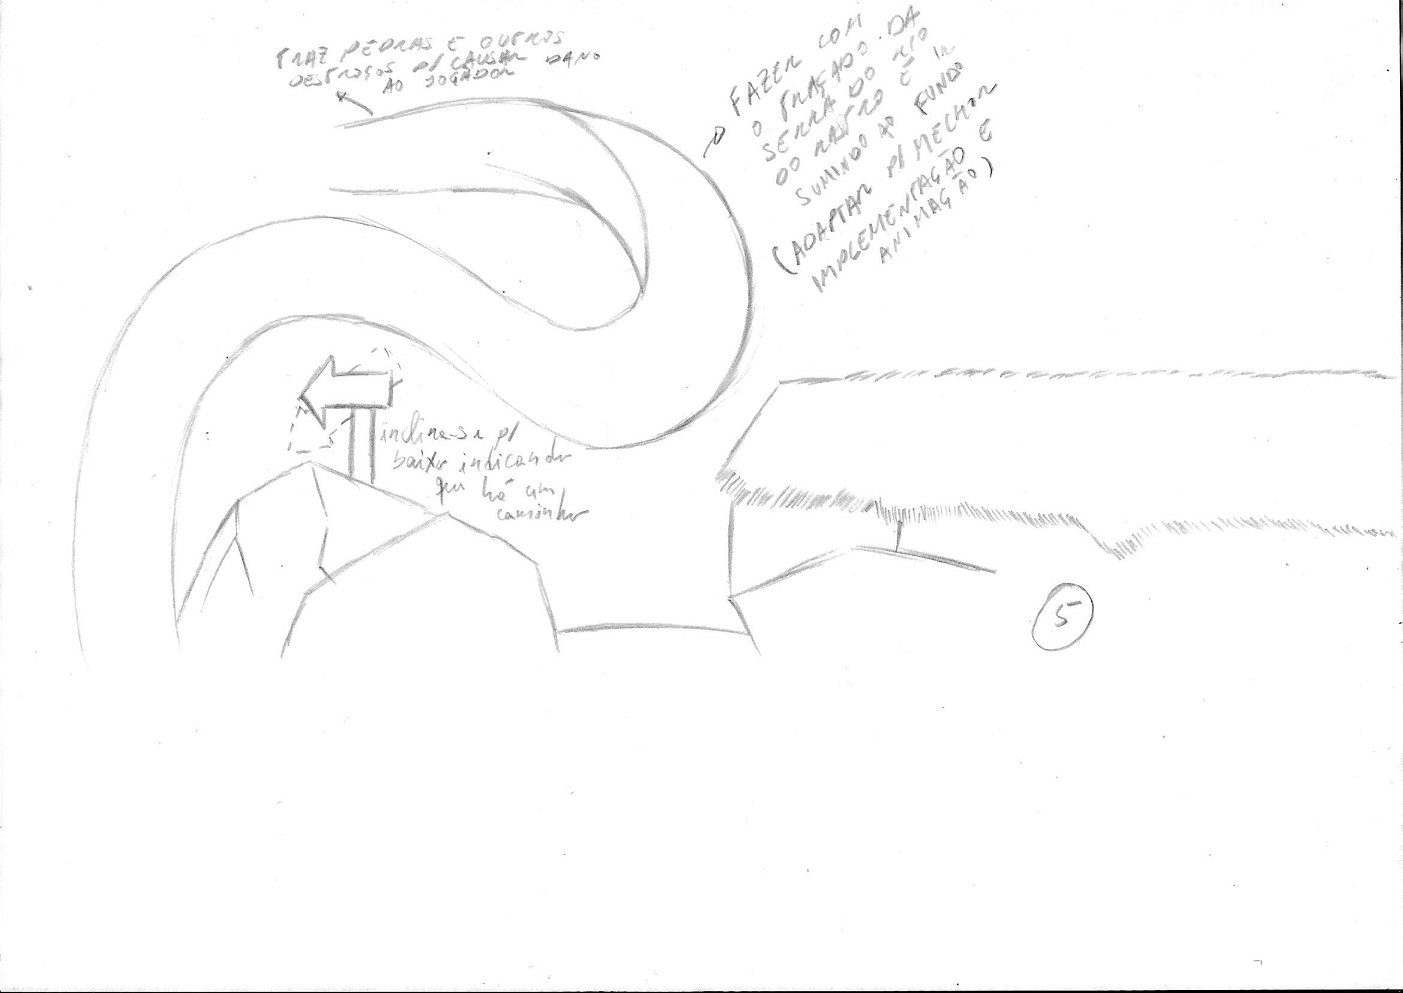 TRAZ PEDRAS E OUTROS
DESTROÇOS P/ CAUSAR DANO
AO JOGADOR
FAZER COM
O TRAÇADO DA
SERRA DO RIO
DO RASTRO E IR
SUMINDO AO FUNDO
(ADAPTAR P/ MELHOR
IMPLEMENTAÇÃO E
ANIMAÇÃO)
incline-se p/
baixo indicando
que há um
caminho
5